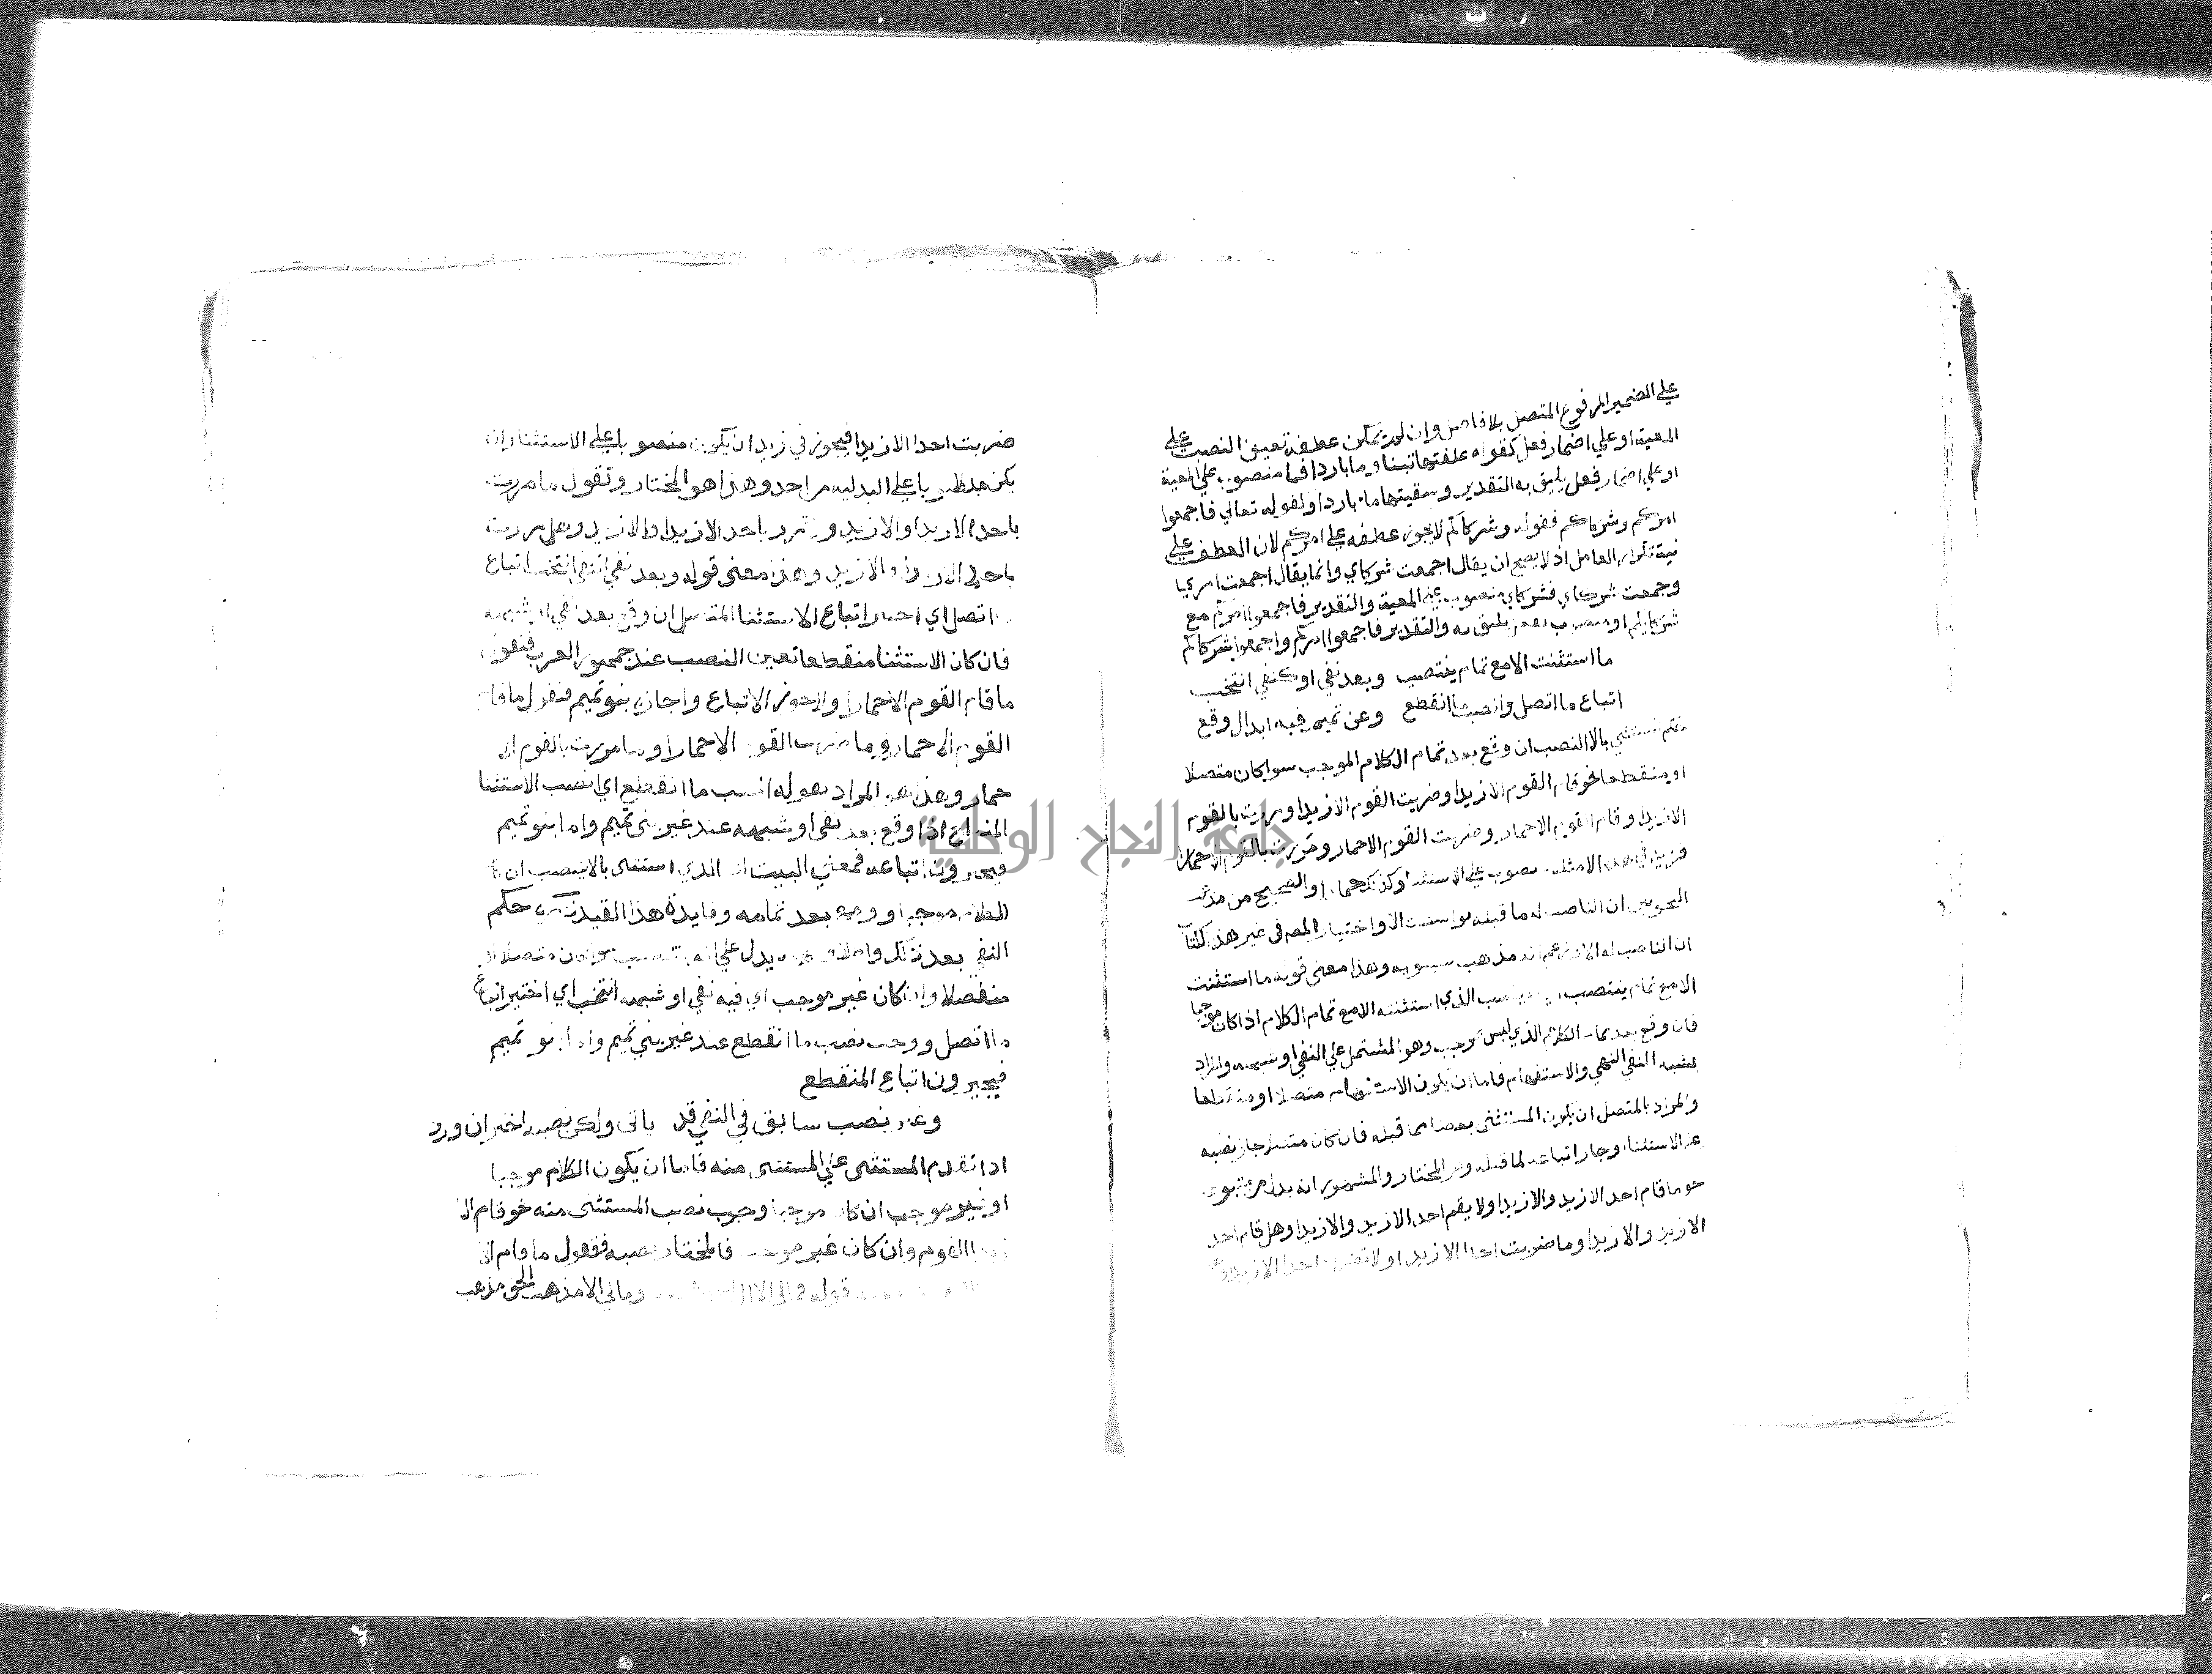 علي الضمير المرفوع المتصل بلا فاصل وان لم يمكن عطفه تعين النصب علي
المعية او علي اضمار فعل كقوله علفتها تبنا وما باردا فما منصوب علي المعية
او علي اضمار فعل يليق به التقدير وسقيتها ما باردا ولقوله تعالي فاجمعوا
امركم وشركاكم فقوله وشركاكم لا يجوز عطفه علي امركم لان العطف علي
نية تكرار العامل اذ لا يصح ان يقال اجمعت شركاي وانما يقال اجمعت امري
وجمعت شركاي فشركاي منصوب علي المعية والتقدير فاجمعوا امركم مع
شركايكم او منصوب بفعل يليق به والتقدير فاجمعوا امركم واجمعوا شركاكم
ما استثنت الا مع تمام ينتصب وبعد نفي او كنفي انتخب
اتباع ما اتصل وانصب ما انقطع وعن تميم فيه ابدال وقع
حكم المستثني بالا النصب ان وقع بعد تمام الكلام الموجب سوا كان متصلا
او منقطعا نحو قام القوم الا زيدا وضربت القوم الا زيدا ومررت بالقوم
الا زيدا وقام القوم الا حمارا وضربت القوم الا حمارا ومررت بالقوم الا حمارا
فزيدا في هذه الامثلة منصوب علي الاستثنا وكذلك حمارا والصحيح من مذهب
النحويين ان الناصب له ما قبله بواسطة الا واختيار المص في غير هذا الكتاب
ان الناصب له الا وزعم انه مذهب سيبويه وهذا معني قوله ما استثنت
الا مع تمام ينتصب اي انه ينتصب الذي استثنته الا مع تمام الكلام اذا كان موجبا
فان وقع بعد تمام الكلام الذي ليس بموجب وهو المشتمل علي النفي او شبهه والمراد
بشبه النفي النهي والاستفهام فاما ان يكون الاستثنا متصلا او منقطعا
والمراد بالمتصل ان يكون المستثني بعضا مما قبله فان كان متصلا جاز نصبه
علي الاستثنا وجاز اتباعه لما قبله وهو المختار والمشهور انه بدل من متبوعه
نحو ما قام احد الا زيد والا زيدا ولا يقم احد الا زيد والا زيدا وهل قام احد
الا زيد والا زيدا وما ضربت احدا الا زيدا ولا تضرب احدا الا زيدا
ضربت احدا الا زيدا فيجوز في زيدا ان يكون منصوبا علي الاستثنا وان
يكون منصوبا علي البدلية من احد وهذا هو المختار وتقول ما مررت
باحد الا زيد والا زيدا ولا تمرر باحد الا زيد والا زيدا وهل مررت
باحد الا زيد والا زيدا وهذا معني قوله وبعد نفي او كنفي انتخب اتباع
ما اتصل اي اختير اتباع الاستثنا المتصل ان وقع بعد نفي او شبهه
فان كان الاستثنا منقطعا تعين النصب عند جمهور العرب فتقول
ما قام القوم الا حمارا ولا يجوز الاتباع واجازه بنو تميم فتقول ما قام
القوم الا حمار وما ضربت القوم الا حمارا وما مررت بالقوم الا
حمار وهذا هو المراد بقوله انصب ما انقطع اي انصب الاستثنا
المنقطع اذا وقع بعد نفي او شبهه عند غير بني تميم واما بنو تميم
فيجوزون اتباعه فمعني البيت ان الذي استثني بالا ينتصب ان كان
الكلام موجبا ووقع بعد تمامه وفايدة هذا القيد حكم
النفي بعد ذلك يدل علي انه ينتصب متصلا او
منفصلا وان كان غير موجب اي فيه نفي او شبهه انتخب اي اختير اتباع
ما اتصل ووجب نصب ما انقطع عند غير بني تميم واما بنو تميم
فيجيزون اتباع المنقطع
وغير نصب سابق في النفي قد ياتي ولكن نصبه اختر ان ورد
اذا تقدم المستثني علي المستثني منه فاما ان يكون الكلام موجبا
او غير موجب ان كان موجبا وجب نصب المستثني منه نحو قام الا
زيدا القوم وان كان غير موجب فالمختار نصبه فتقول ما قام الا
قوله ومالي الا ومالي الا مذهب الحق مذهب